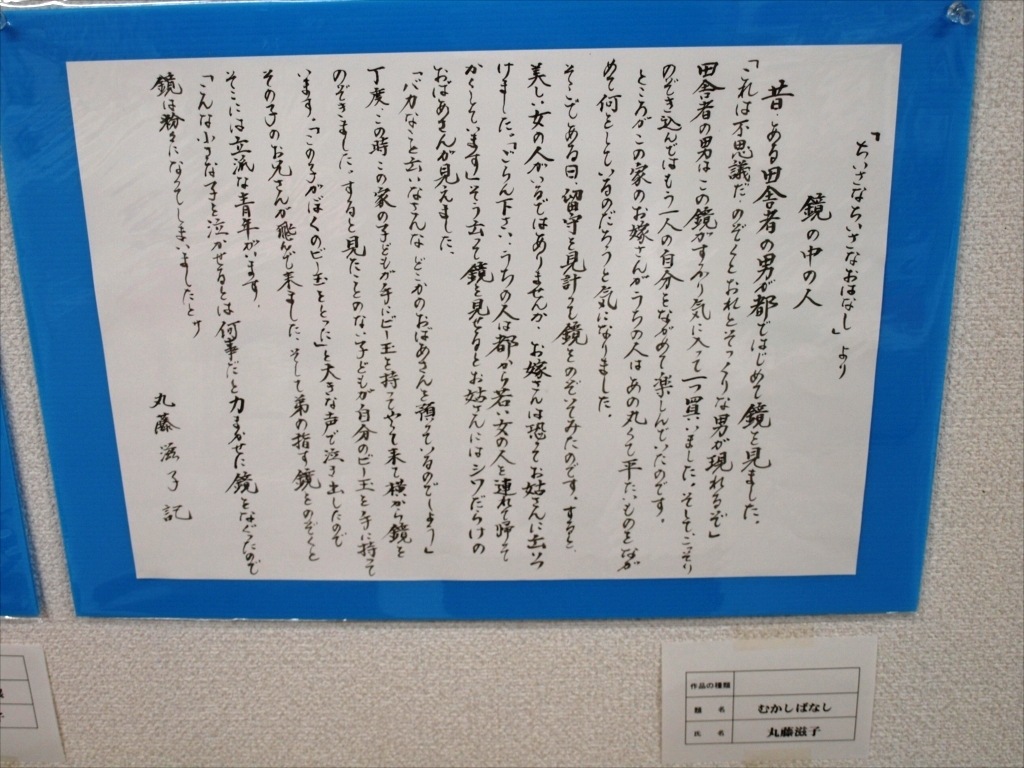 「ちいさなちいさなおはなし」より
鏡の中の人
昔、ある田舎者の男が都ではじめて鏡を見ました。
「これは不思議だ、のぞくとおれとそっくりな男が現れるぞ」
田舎者の男はこの鏡がすっかり気に入って一つ買いました。そしてこっそり
のぞき込んではもう一人の自分をながめて楽しんでいたのです。
ところがこの家のお嫁さんがうちの人はあの丸くて平たいものをなが
めて何をしているのだろうと気になりました。
そこである日、留守を見計って鏡をのぞいてみたのです。すると、
美しい女の人がいるではありませんか、お嫁さんは恐ってお姑さんに云いつ
けました。「ごらん下さい、うちの人は都から若い女の人を連れて帰って
かくしています」そう云って鏡を見せるとお姑さんにはシワだらけの
おばあさんが見えました。
「バカなこと云いなさんな どこかのおばあさんを預っているのでしょう」
丁度、この時、この家の子どもが手にビー玉を持ってやって来て横から鏡を
のぞきました。すると見たことのない子どもが自分のビー玉を手に持って
います。「この子がぼくのビー玉をとった」と大きな声で泣き出したので
その子のお兄さんが飛んで来ました。そして弟の指す鏡をのぞくと
そこには立派な青年がいます。
「こんな小さな子を泣かせるとは何事だ」と力まかせに鏡をなぐったので
鏡は粉々になってしまいましたとサ
丸藤滋子 記
作品の種類
題 名 むかしばなし
氏 名 丸藤滋子